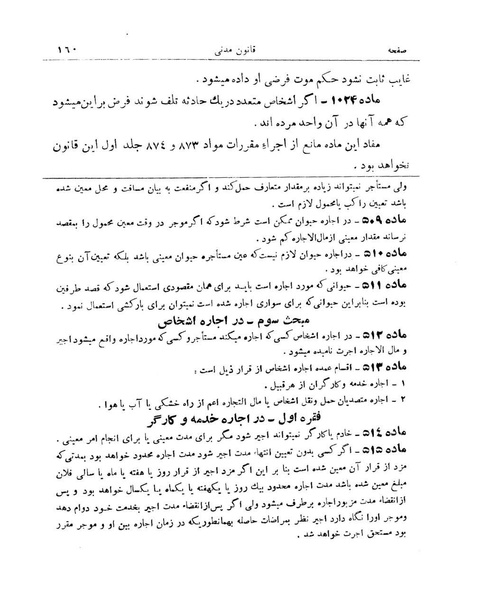 صفحه قانون مدنی ۱۶۰
غایب ثابت نشود حکم موت فرضی او داده میشود .
ماده ۱۰۲۴ - اگر اشخاص متعدد در یك حادثه تلف شوند فرض بر این میشود
که همه آنها در آن واحد مرده اند .
مفاد این ماده مانع از اجراء مقررات مواد ۸۷۳ و ۸۷۴ جلد اول این قانون
نخواهد بود .
ولی مستأجر نمیتواند زیاده بر مقدار متعارف حمل کند و اگر منفعت به بیان مسافت و محل معین شده
باشد تعیین راکب یا محمول لازم است .
ماده ۵۰۹ - در اجاره حیوان ممکن است شرط شود که اگر موجر در وقت معین محمول را بمقصد
نرساند مقدار معینی از مال الاجاره کم شود .
ماده ۵۱۰ - در اجاره حیوان لازم نیست که عین مستأجره حیوان معینی باشد بلکه تعیین آن بنوع
معینی کافی خواهد بود .
ماده ۵۱۱ - حیوانی که مورد اجاره است باید برای همان مقصودی استعمال شود که قصد طرفین
بوده است بنابراین حیوانی که برای سواری اجاره شده است نمیتوان برای بارکشی استعمال نمود .
مبحث سوم - در اجاره اشخاص
ماده ۵۱۲ - در اجاره اشخاص کسی که اجاره میکند مستأجر و کسی که مورد اجاره واقع میشود اجیر
و مال الاجاره اجرت نامیده میشود .
ماده ۵۱۳ - اقسام عمده اجاره اشخاص از قرار ذیل است :
۱ - اجاره خدمه و کارگران از هر قبیل .
۲ - اجاره متصدیان حمل و نقل اشخاص یا مال التجاره اعم از راه خشکی یا آب یا هوا .
فقره اول - در اجاره خدمه و کارگر
ماده ۵۱۴ - خادم یا کارگر نمیتواند اجیر شود مگر برای مدت معینی یا برای انجام امر معینی .
ماده ۵۱۵ - اگر کسی بدون تعیین انتهاء مدت اجیر شود مدت اجاره محدود خواهد بود بمدتی که
مزد از قرار آن معین شده است بنا بر این اگر مزد اجیر از قرار روز یا هفته یا ماه یا سالی فلان
مبلغ معین شده باشد مدت اجاره محدود بیك روز یا یکهفته یا یکماه یا یکسال خواهد بود و پس
از انقضاء مدت مزبور اجاره برطرف میشود ولی اگر پس از انقضاء مدت اجیر بخدمت خود دوام دهد
وموجر اورا نگاه دارد اجیر نظر بمراضات حاصله بهمانطوریکه در زمان اجاره بین او و موجر مقرر
بود مستحق اجرت خواهد شد .